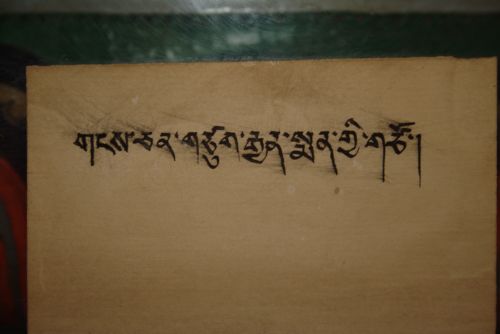 གངས་ཅན་གཙུག་རྒྱན་སྨན་གྱི་གཙོ་།